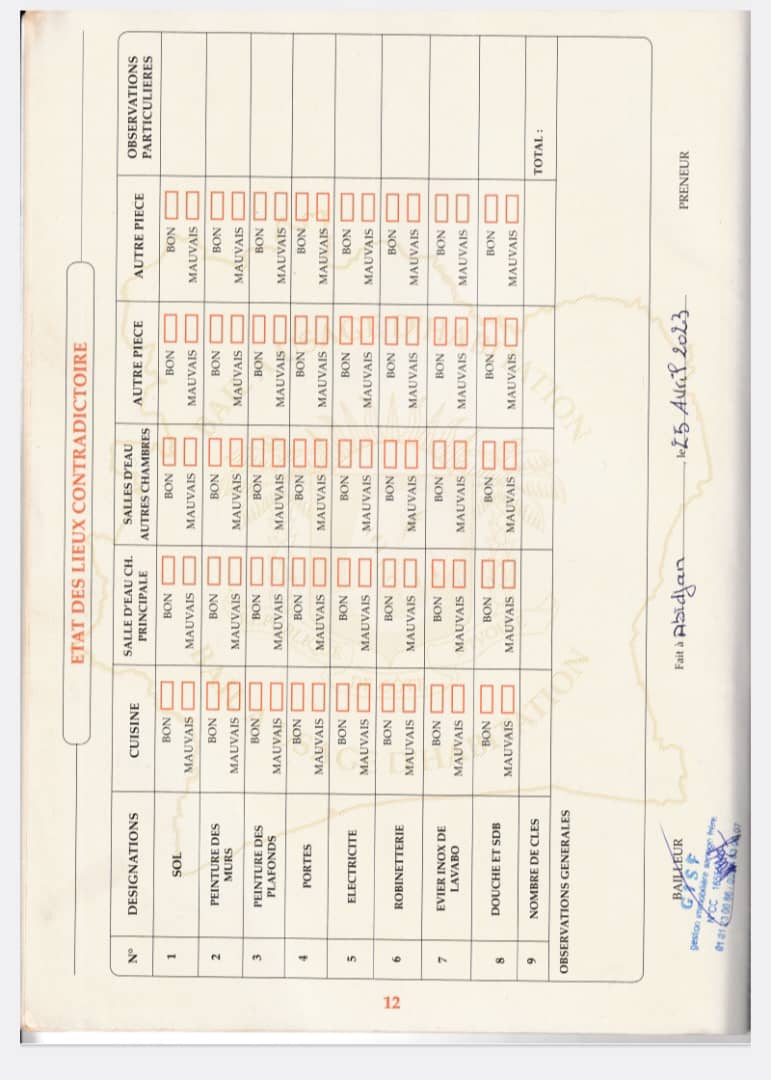 ETAT DES LIEUX CONTRADICTOIRE
N° DESIGNATIONS CUISINE SALLE D'EAU CH. PRINCIPALE SALLES D'EAU AUTRES CHAMBRES AUTRE PIECE AUTRE PIECE OBSERVATIONS PARTICULIERES
1 SOL BON BON BON BON BON
MAUVAIS MAUVAIS MAUVAIS MAUVAIS MAUVAIS
2 PEINTURE DES MURS BON BON BON BON BON
MAUVAIS MAUVAIS MAUVAIS MAUVAIS MAUVAIS
3 PEINTURE DES PLAFONDS BON BON BON BON BON
MAUVAIS MAUVAIS MAUVAIS MAUVAIS MAUVAIS
4 PORTES BON BON BON BON BON
MAUVAIS MAUVAIS MAUVAIS MAUVAIS MAUVAIS
5 ELECTRICITE BON BON BON BON BON
MAUVAIS MAUVAIS MAUVAIS MAUVAIS MAUVAIS
6 ROBINETTERIE BON BON BON BON BON
MAUVAIS MAUVAIS MAUVAIS MAUVAIS MAUVAIS
7 EVIER INOX DE LAVABO BON BON BON BON BON
MAUVAIS MAUVAIS MAUVAIS MAUVAIS MAUVAIS
8 DOUCHE ET SDB BON BON BON BON BON
MAUVAIS MAUVAIS MAUVAIS MAUVAIS MAUVAIS
9 NOMBRE DE CLES TOTAL :
OBSERVATIONS GENERALES
Fait à Abidjan le 25 Avril 2023
BAILLEUR PRENEUR
GISF
gestion immobilière
CC
01 01
12